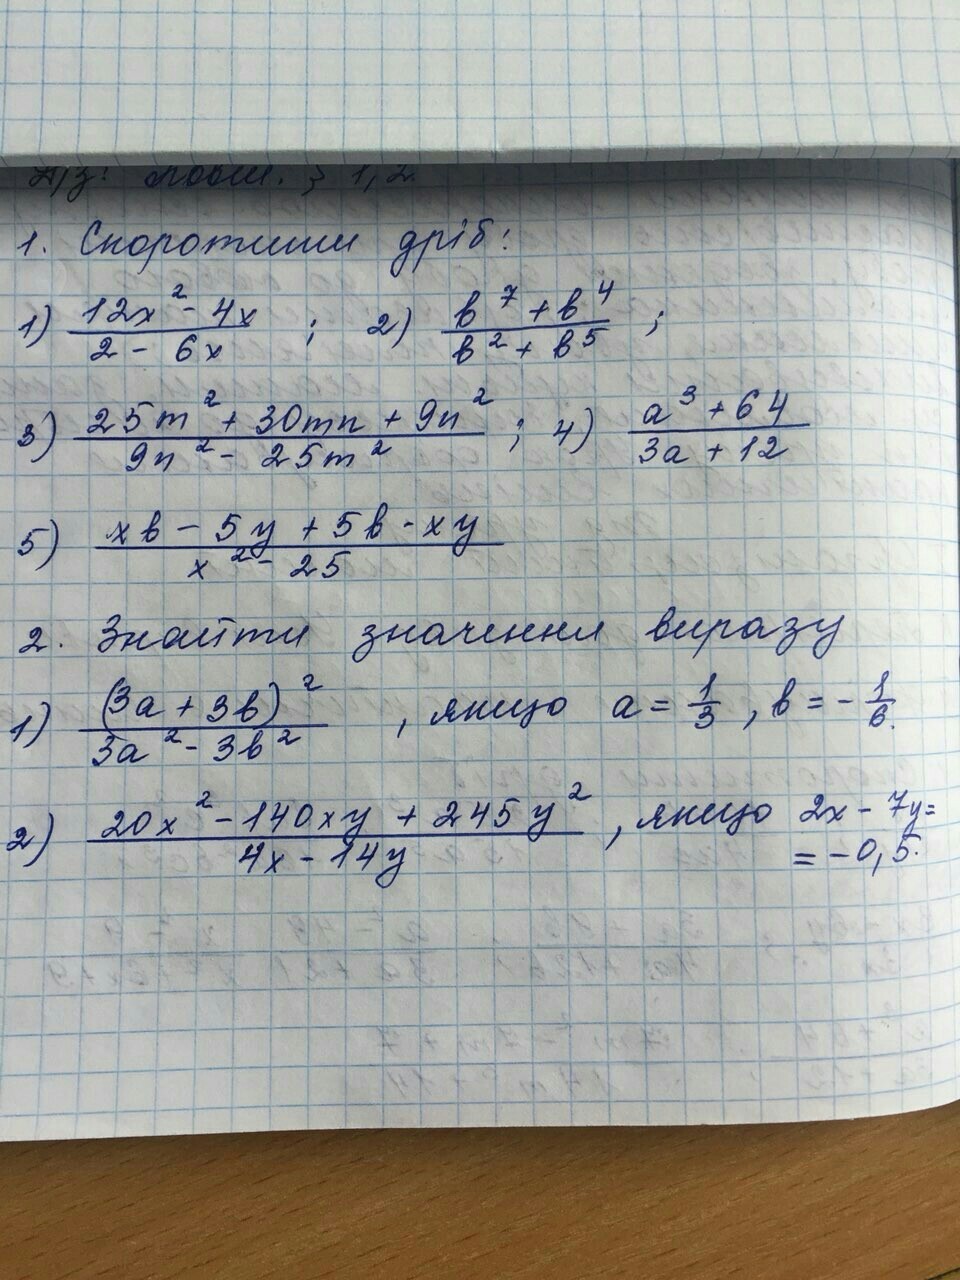 1. Скоротити дріб:
1) (12x² - 4x)/(2 - 6x) ; 2) (b⁷ + b⁴)/(b² + b⁵) ;
3) (25m² + 30mn + 9n²)/(9n² - 25m²) ; 4) (a³ + 64)/(3a + 12)
5) (xb - 5y + 5b - xy)/(x² - 25)
2. Знайти значення виразу
1) (3a + 3b)²/(3a² - 3b²) , якщо a = 1/3 , b = -1/6.
2) (20x² - 140xy + 245y²)/(4x - 14y) , якщо 2x - 7y =
= -0,5.